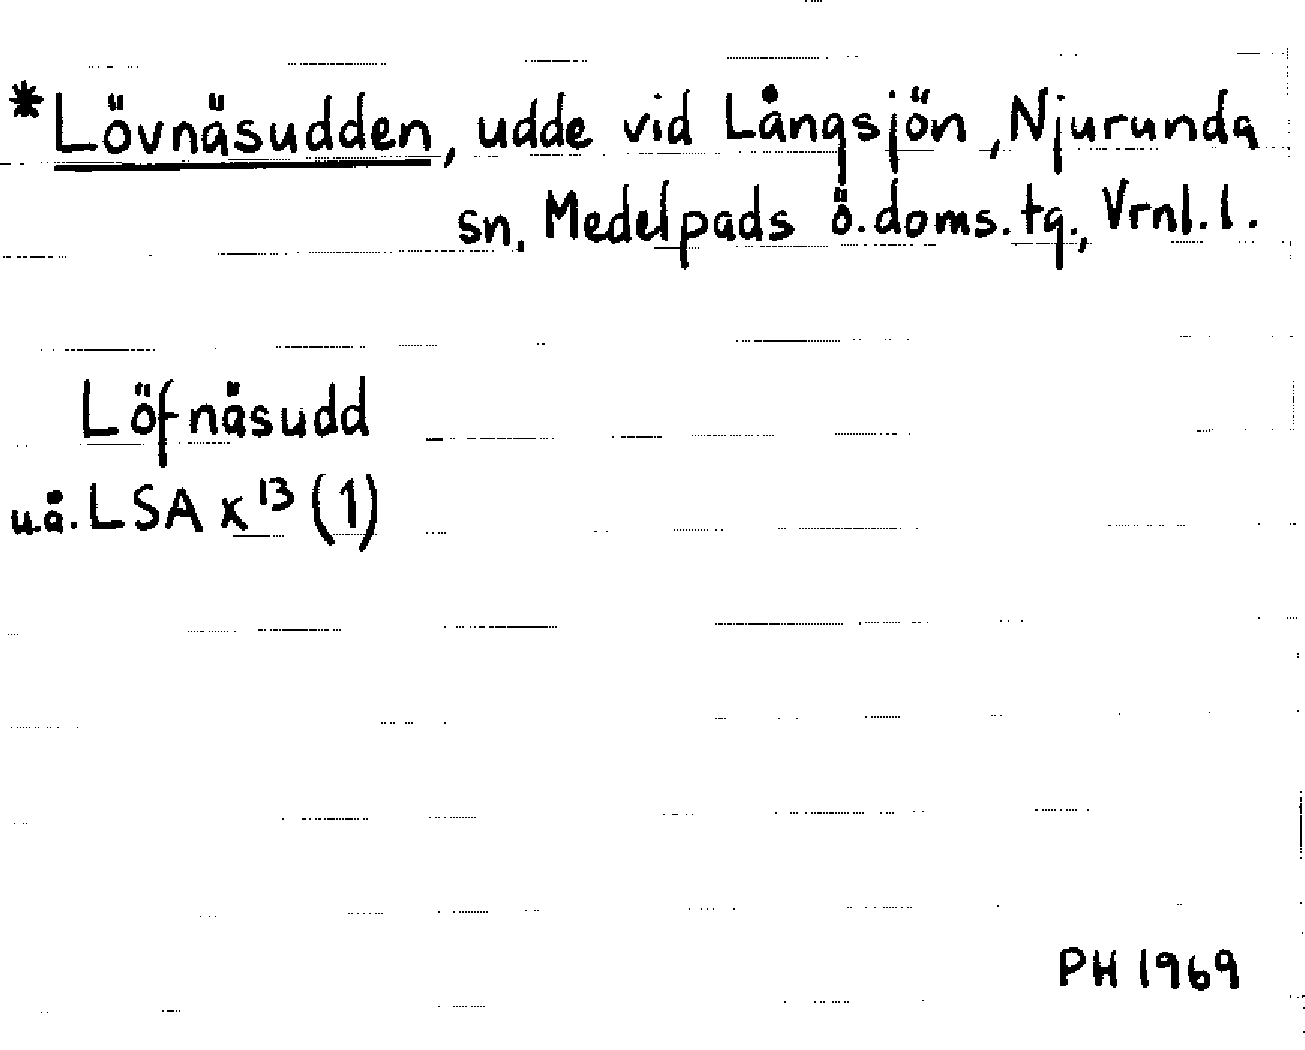 *Lövnäsudden, udde vid Långsjön, Njurunda
sn, Medelpads ö.doms.tg., Vrnl.l.
Löfnäsudd
u.å. LSA x¹³ (1)
PH 1969